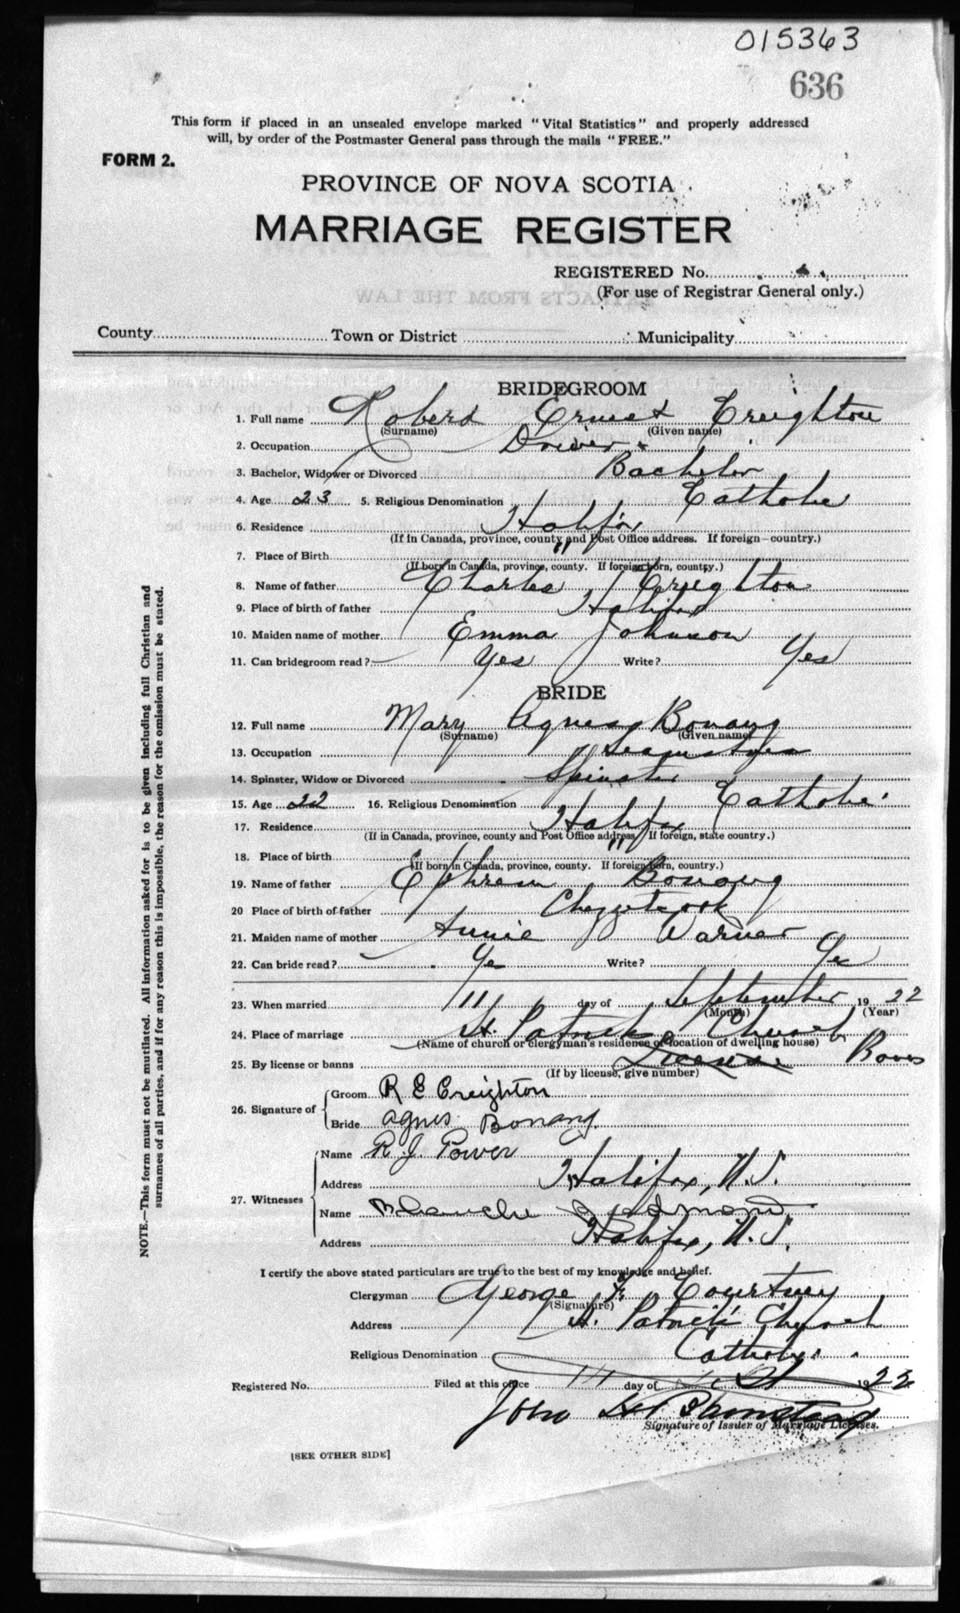 015363
636
This form if placed in an unsealed envelope marked "Vital Statistics" and properly addressed
will, by order of the Postmaster General pass through the mails "FREE."
FORM 2.
PROVINCE OF NOVA SCOTIA
MARRIAGE REGISTER
REGISTERED No.
(For use of Registrar General only.)
County Town or District Municipality
BRIDEGROOM
1. Full name Robert Ernest Creighton
(Surname) (Given name)
2. Occupation Driver
3. Bachelor, Widower or Divorced Bachelor
4. Age 23 5. Religious Denomination Catholic
6. Residence Halifax
(If in Canada, province, county and Post Office address. If foreign—country.)
7. Place of Birth "
(If born in Canada, province, county. If foreign born, country.)
8. Name of father Charles Creighton
9. Place of birth of father Halifax
10. Maiden name of mother Emma Johnson
11. Can bridegroom read? Yes Write? Yes
BRIDE
12. Full name Mary Agnes Bonang
(Surname) (Given name)
13. Occupation Seamstress
14. Spinster, Widow or Divorced Spinster
15. Age 22 16. Religious Denomination Catholic
17. Residence Halifax
(If in Canada, province, county and Post Office address. If foreign, state country.)
18. Place of birth "
(If born in Canada, province, county. If foreign born, country.)
19. Name of father Ephrem Bonang
20 Place of birth of father Chezzetcook
21. Maiden name of mother Annie Warner
22. Can bride read? Yes Write? Yes
23. When married 11 day of September 1922
(Month) (Year)
24. Place of marriage St. Patrick's Church
(Name of church or clergyman's residence or location of dwelling house)
25. By license or banns License Banns
(If by license, give number)
26. Signature of Groom R E Creighton
Bride Agnes Bonang
27. Witnesses Name R. J. Power
Address Halifax, N.S.
Name Blanche Redmond
Address Halifax, N.S.
I certify the above stated particulars are true to the best of my knowledge and belief.
Clergyman George F. Courtney
(Signature)
Address St. Patrick's Church
Religious Denomination Catholic
Registered No. Filed at this office day of 1922
John
Signature of Issuer of Marriage Licenses.
[SEE OTHER SIDE]
NOTE.—This form must not be mutilated. All information asked for is to be given including full Christian and
surnames of all parties, and if for any reason this is impossible, the reason for the omission must be stated.